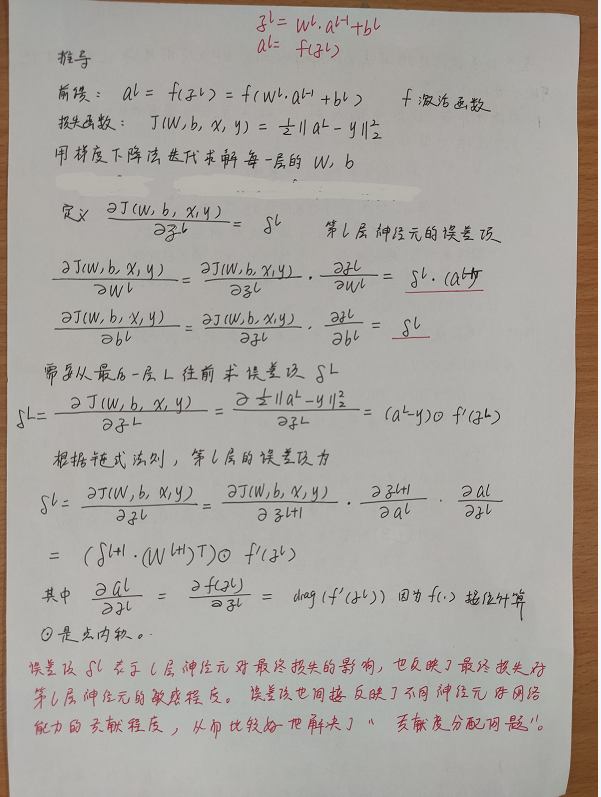 z^l = W^l·a^{l-1}+b^l
a^l = f(z^l)
推导
前馈: a^l = f(z^l) = f(W^l·a^{l-1}+b^l) f激活函数
损失函数: J(W,b,x,y) = ½‖a^L-y‖₂²
用梯度下降法迭代求解每一层的W,b
定义 ∂J(W,b,x,y)/∂z^l = δ^l 第l层神经元的误差项
∂J(W,b,x,y)/∂W^l = ∂J(W,b,x,y)/∂z^l · ∂z^l/∂W^l = δ^l·(a^{l-1})^T
∂J(W,b,x,y)/∂b^l = ∂J(W,b,x,y)/∂z^l · ∂z^l/∂b^l = δ^l
需要从最后一层L往前求误差项δ^L
δ^L = ∂J(W,b,x,y)/∂z^L = ∂½‖a^L-y‖₂²/∂z^L = (a^L-y)⊙f'(z^L)
根据链式法则,第l层的误差项为
δ^l = ∂J(W,b,x,y)/∂z^l = ∂J(W,b,x,y)/∂z^{l+1} · ∂z^{l+1}/∂a^l · ∂a^l/∂z^l
= (δ^{l+1}·(W^{l+1})^T)⊙f'(z^l)
其中 ∂a^l/∂z^l = ∂f(z^l)/∂z^l = diag(f'(z^l)) 因为f(·)按位计算
⊙是点内积。
误差项δ^l表示l层神经元对最终损失的影响,也反映了最终损失对
第l层神经元的敏感程度。误差项也间接反映了不同神经元对网络
能力的贡献程度,从而比较好地解决了“贡献度分配问题”。